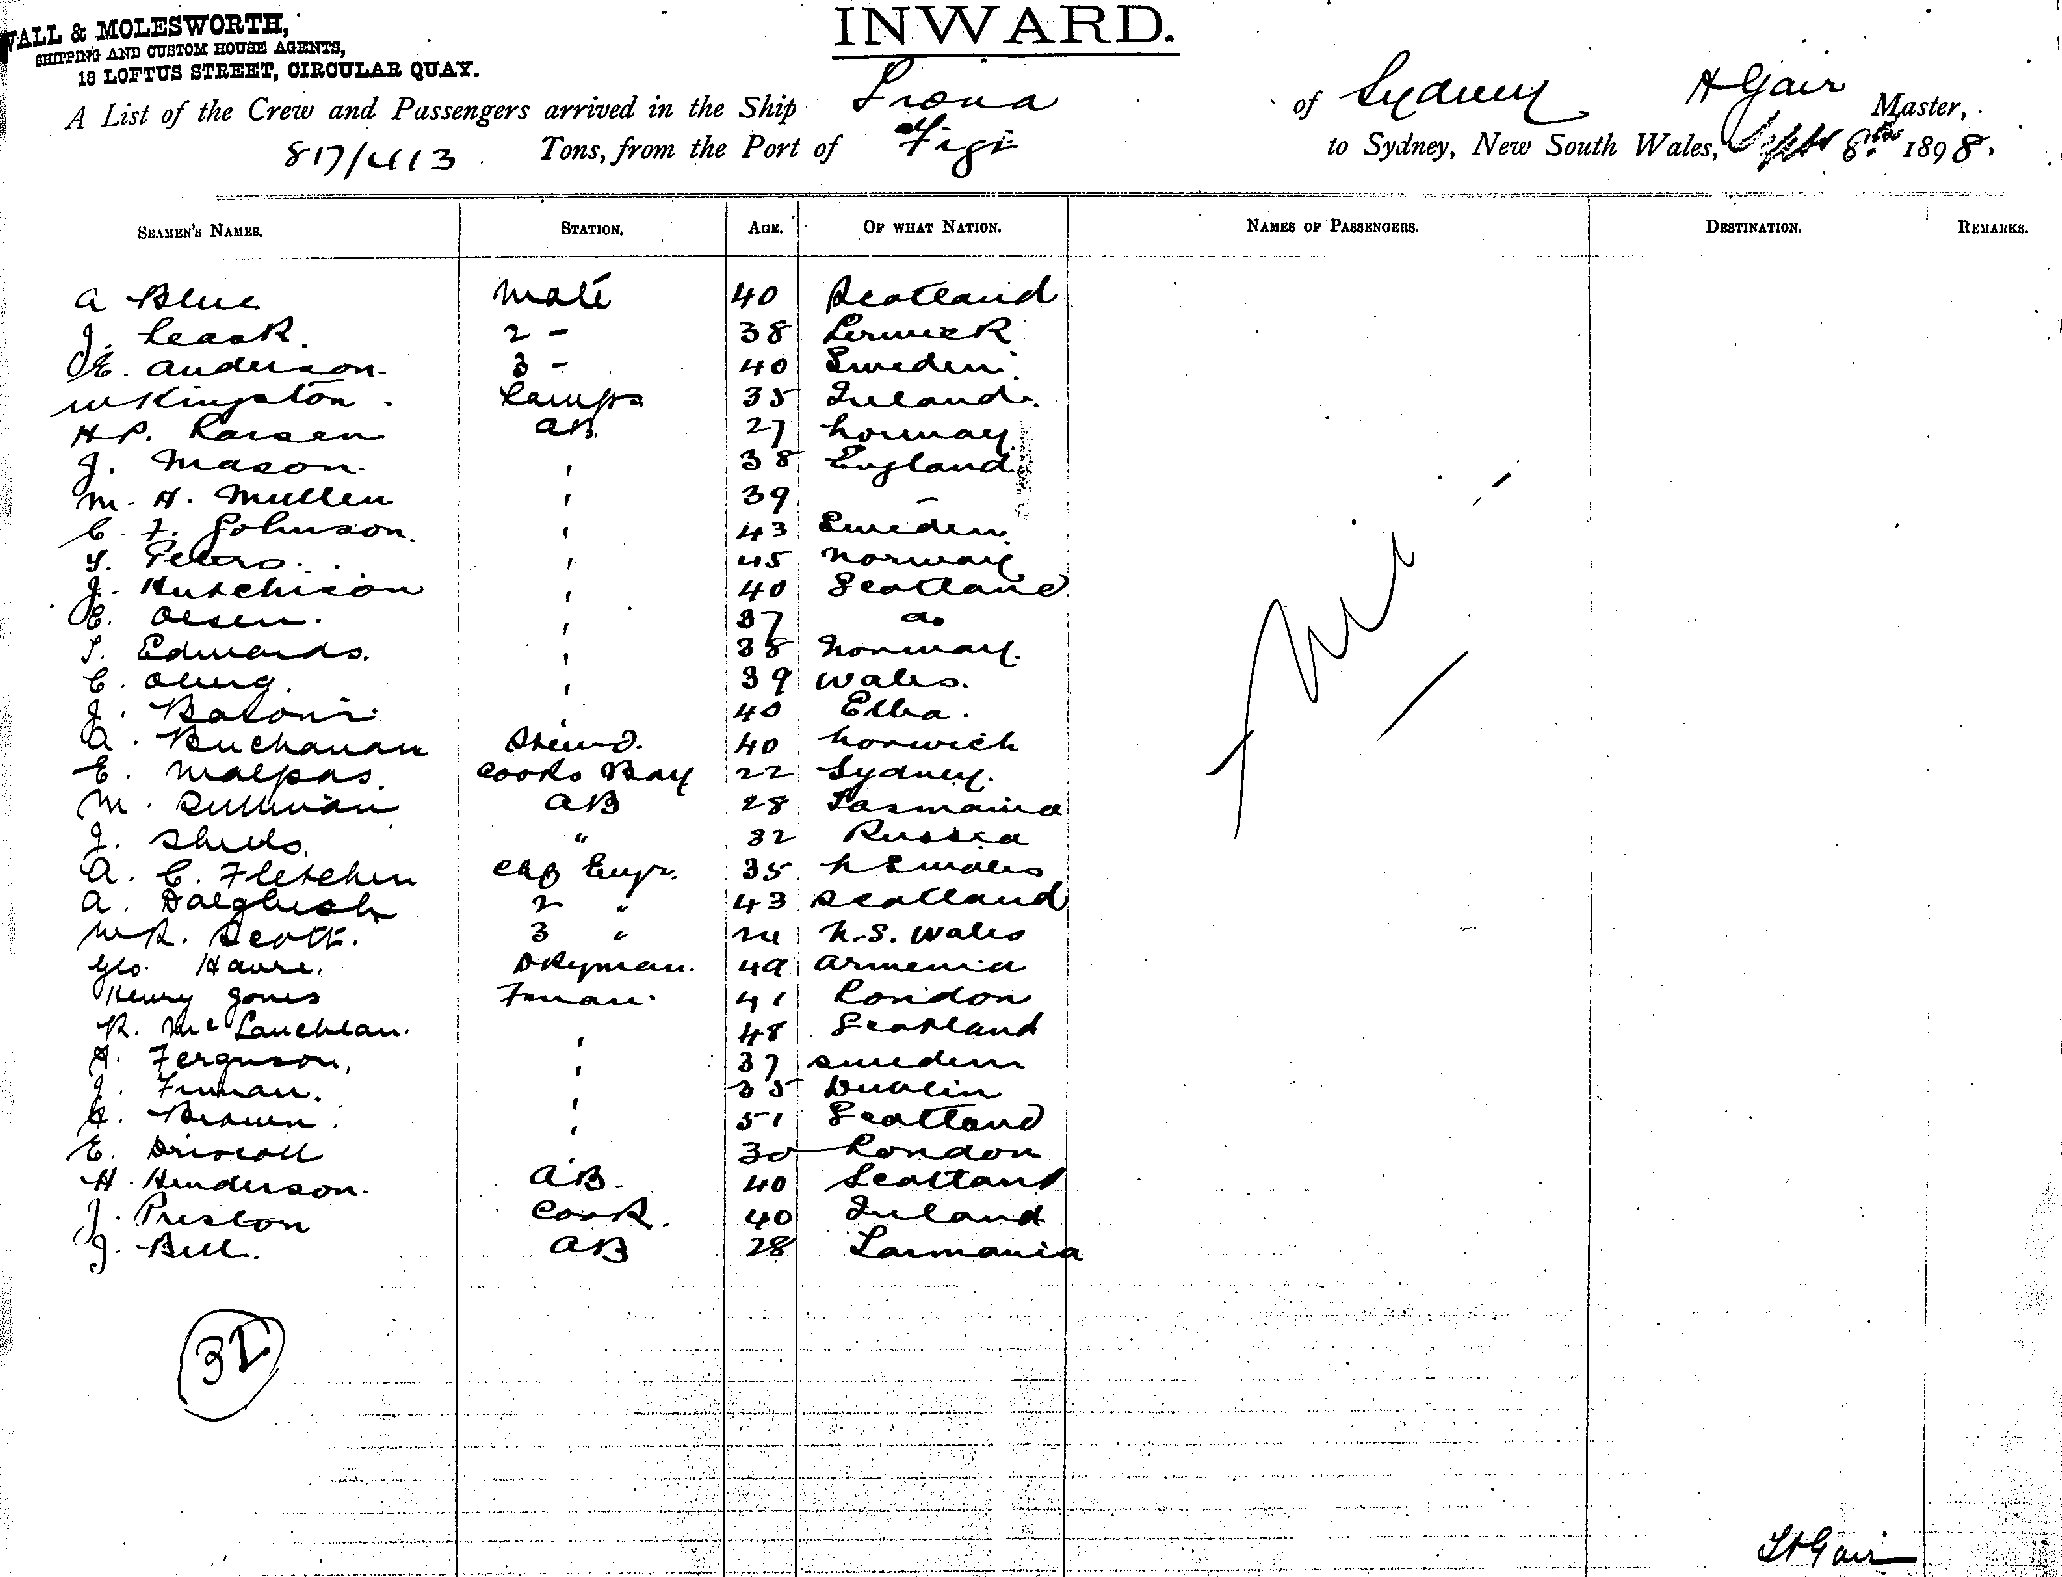 WALL & MOLESWORTH,
SHIPPING AND CUSTOM HOUSE AGENTS,
18 LOFTUS STREET, CIRCULAR QUAY.
INWARD.
A List of the Crew and Passengers arrived in the Ship Fiona of Sydney H Gair Master,
817/413 Tons, from the Port of Figi to Sydney, New South Wales, Sept 8th 1898.
SEAMEN'S NAMES. STATION. AGE. OF WHAT NATION. NAMES OF PASSENGERS. DESTINATION. REMARKS.
A Blue Mate 40 Scotland
J. Leask. 2 - 38 Lerwick
E. Anderson. 3 - 40 Sweden.
W Kingston. Lamps 35 Ireland.
H P. Larsen AB 27 Norway
J. Mason. ' 38 England
M. H. Mullen ' 39 -
C. F. Johnson. ' 43 Sweden.
Y. Peters. ' 45 Norway
J. Hutchison ' 40 Scotland
E. Olsen. ' 37 do
T. Edwards. ' 38 Norway.
C. ' 39 Wales.
J. ' 40 Elba.
A. Buchanan Stewd. 40 Norwich
E. Malpas. Cooks Bay 22 Sydney.
M. Sullivan AB 28 Tasmania
J. Shells. " 32 Russia
A. C. Fletcher Chf Engr. 35 N S Wales
A. Dalglush 2 " 43 Scotland
W R. Scott. 3 " 24 N.S. Wales
Geo. Havre. Dkyman. 49 Armenia
Henry Jones Fman. 41 London
R. McLauchlan. ' 48 Scotland
A. Ferguson, ' 37 Sweden
J. ' 35 Dublin
A. Brown. ' 51 Scotland
E. Driscoll ' 30 London
H. Henderson. AB. 40 Scotland
J. Preston Cook. 40 Ireland
J. Bell. AB 28 Tasmania
Nil
32
H Gair